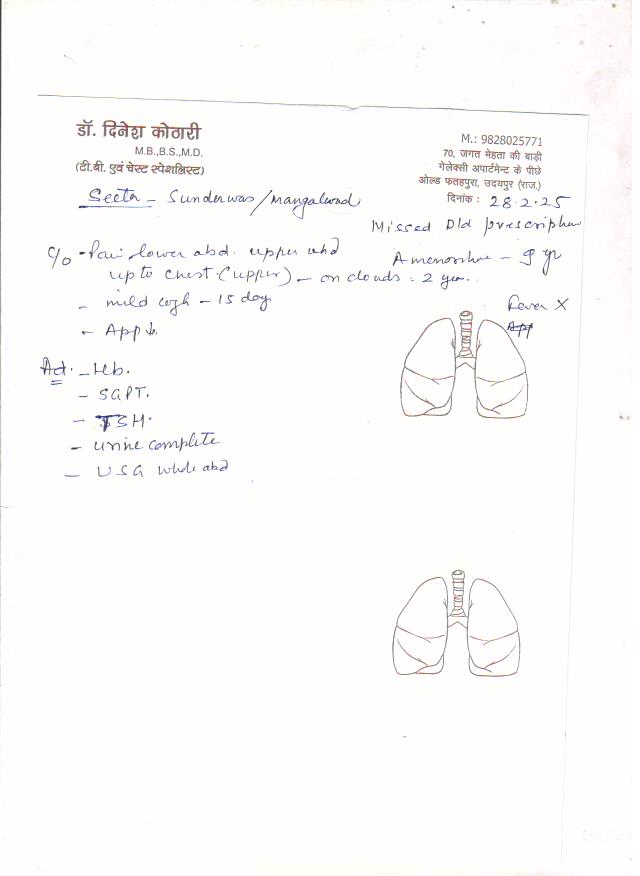 डॉ. दिनेश कोठारी
M.B.,B.S.,M.D.
(टी.बी. एवं चेस्ट स्पेशलिस्ट)
M.: 9828025771
70, जगत मेहता की बाड़ी
गेलेक्सी अपार्टमेन्ट के पीछे
ओल्ड फतहपुरा, उदयपुर (राज.)
दिनांक : 28.2.25
Sunderwas/Mangalwad
Missed Old prescription
C/O - Pain lower abd. upper abd
upto chest (upper) - on clouds : 2 year.
Amenorrhoe - 9 yr
- mild cogh - 15 day
- App ↓.
Fever X
App
Ad. - Hb.
- SGPT.
- TSH.
- urine complete
- USG whole abd